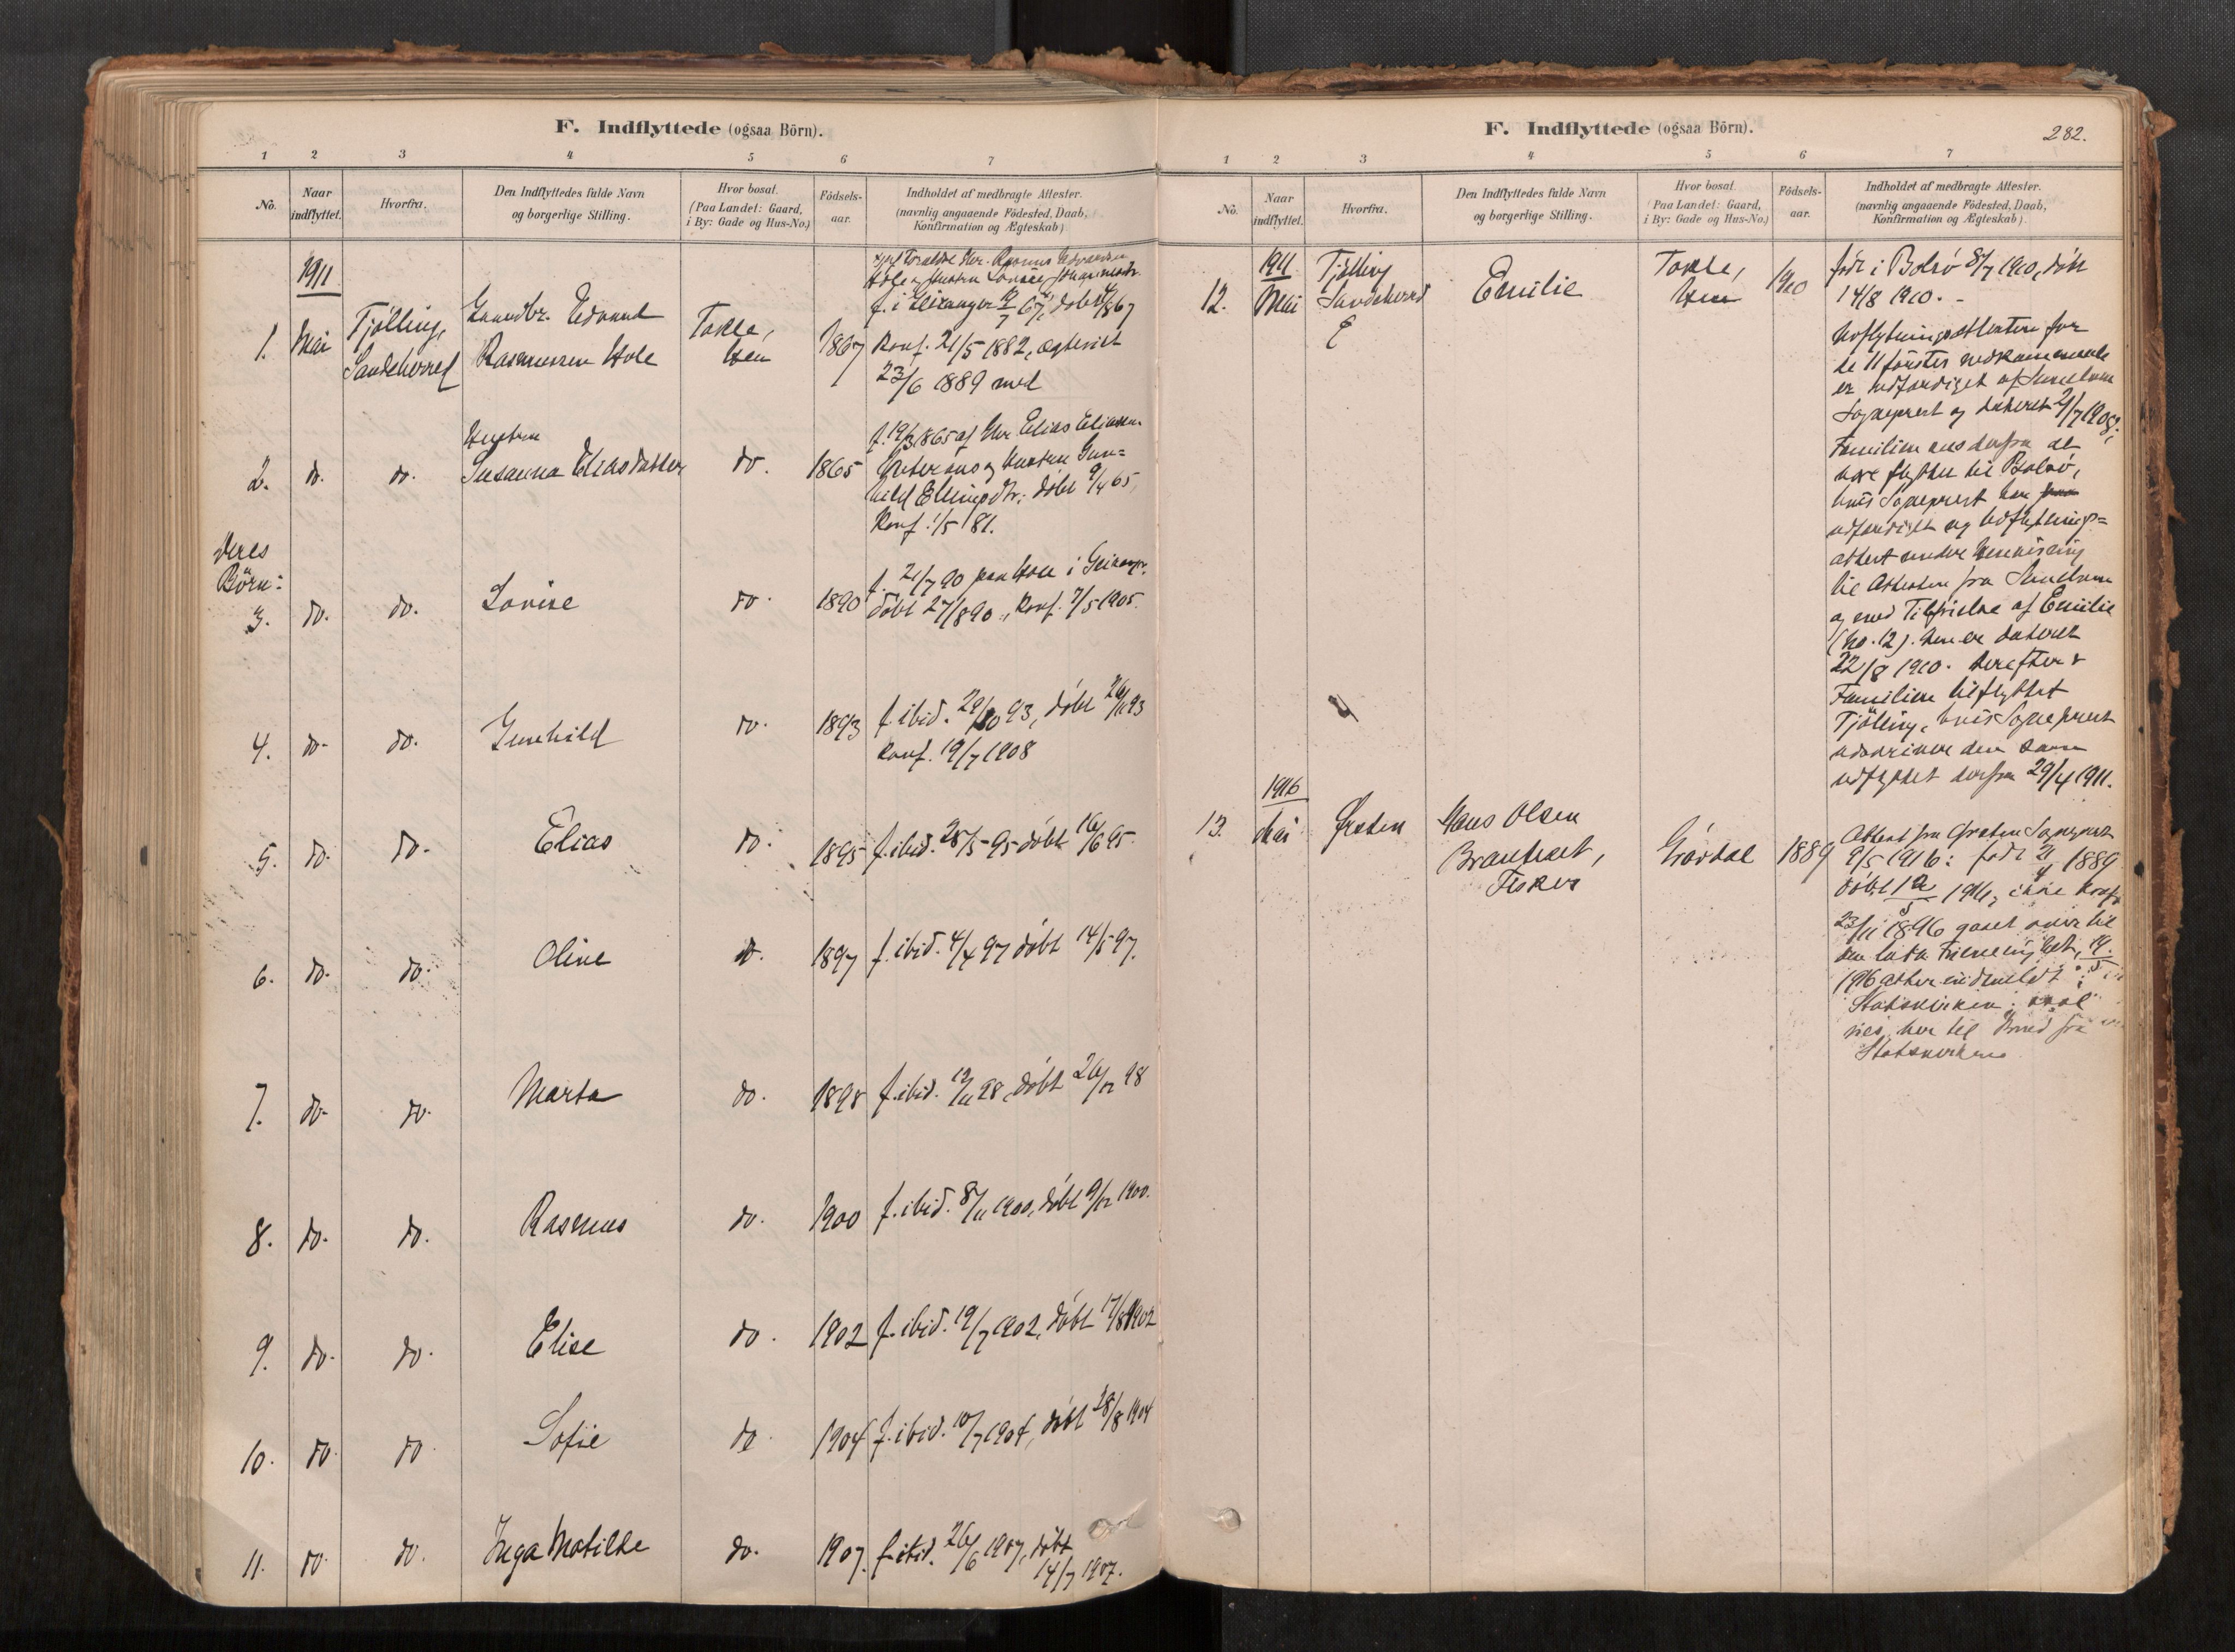 F. Indflyttede (ogsaa Börn).
1 2 3 4 5 6 7
No.
Naar indflyttet.
Hvorfra.
Den Indflyttedes fulde Navn og borgerlige Stilling.
Hvor bosat. (Paa Landet: Gaard, i By: Gade og Hus-No.)
Födsels-aar.
Indholdet af medbragte Attester. (navnlig angaaende Födested, Daab, Konfirmation og Ægteskab)
1911
1. Mai Tjølling, Sandeherred
Edvard
Rasmussen Hole
1867
Konf. 21/5 1882, ægteviet
23/6 1889 med
2. do. do.
Hustru
Susanna Eliasdatter
do. 1865
f. 19/3 1865 af Elias Eliassen
Konf. 1/5 81.
deres
Börn:
3. do. do. Lovise do. 1890
f. 21/7 90 paa Hole i
döbt 27/8 90, Konf. 7/5 1905.
4. do. do. Gunhild do. 1893
f. ibid. 29/10 93, döbt 26/11 93
Konf. 19/7 1908
5. do. do. Elias do. 1895 f. ibid. 28/5 95 döbt 16/6 95.
6. do. do. Oline do. 1897 f. ibid. 4/4 97 döbt 14/5 97.
7. do. do. Marta do. 1898 f. ibid. 12/11 98, döbt 26/12 98
8. do. do. Rasmus do. 1900 f. ibid. 8/11 1900, döbt 9/12 1900.
9. do. do. Elise do. 1902 f. ibid. 19/7 1902, döbt 17/8 1902
10. do. do. Sofie do. 1904 f. ibid. 10/7 1904, döbt 28/8 1904
11. do. do. Inga Matilde do. 1907. f. ibid. 26/6 1907, döbt
14/7 1907.
F. Indflyttede (ogsaa Börn).
282.
1 2 3 4 5 6 7
No.
Naar indflyttet.
Hvorfra.
Den Indflyttedes fulde Navn og borgerlige Stilling.
Hvor bosat. (Paa Landet: Gaard, i By: Gade og Hus-No.)
Födsels-aar.
Indholdet af medbragte Attester. (navnlig angaaende Födested, Daab, Konfirmation og Ægteskab)
1911
12. Mai Tjølling Sandeherred
Emilie
1910
född i Bolsö 8/7 1910, döbt
14/8 1910. -
Udflytningsattesten for
de 11 første
er udfærdiget af
Sogneprest og dateret
Familien
flyttet til Bolsö,
hvis Sogneprest har
udfærdiget ny Udflytnings=
attest under Henvisning
til Attesten fra
og med Tilföielse af Emilie
(No. 12). Den er dateret
22/8 1910. Derefter
Familien tilflyttet
Tjölling, hvis Sogneprest
udskriver den som
udflyttet derfra 29/4 1911.
1916
13. Mai Ørsten
Hans Olsen
Fisker
1889
Attest fra Ørsten Sogneprest
9/5 1916: född 21/4 1889
23/11 1896 gaaet over til
den luth. Frimenighet,
1916 atter indmeldt i
Statskirken; skal
vies her til Brud fra
Statskirken